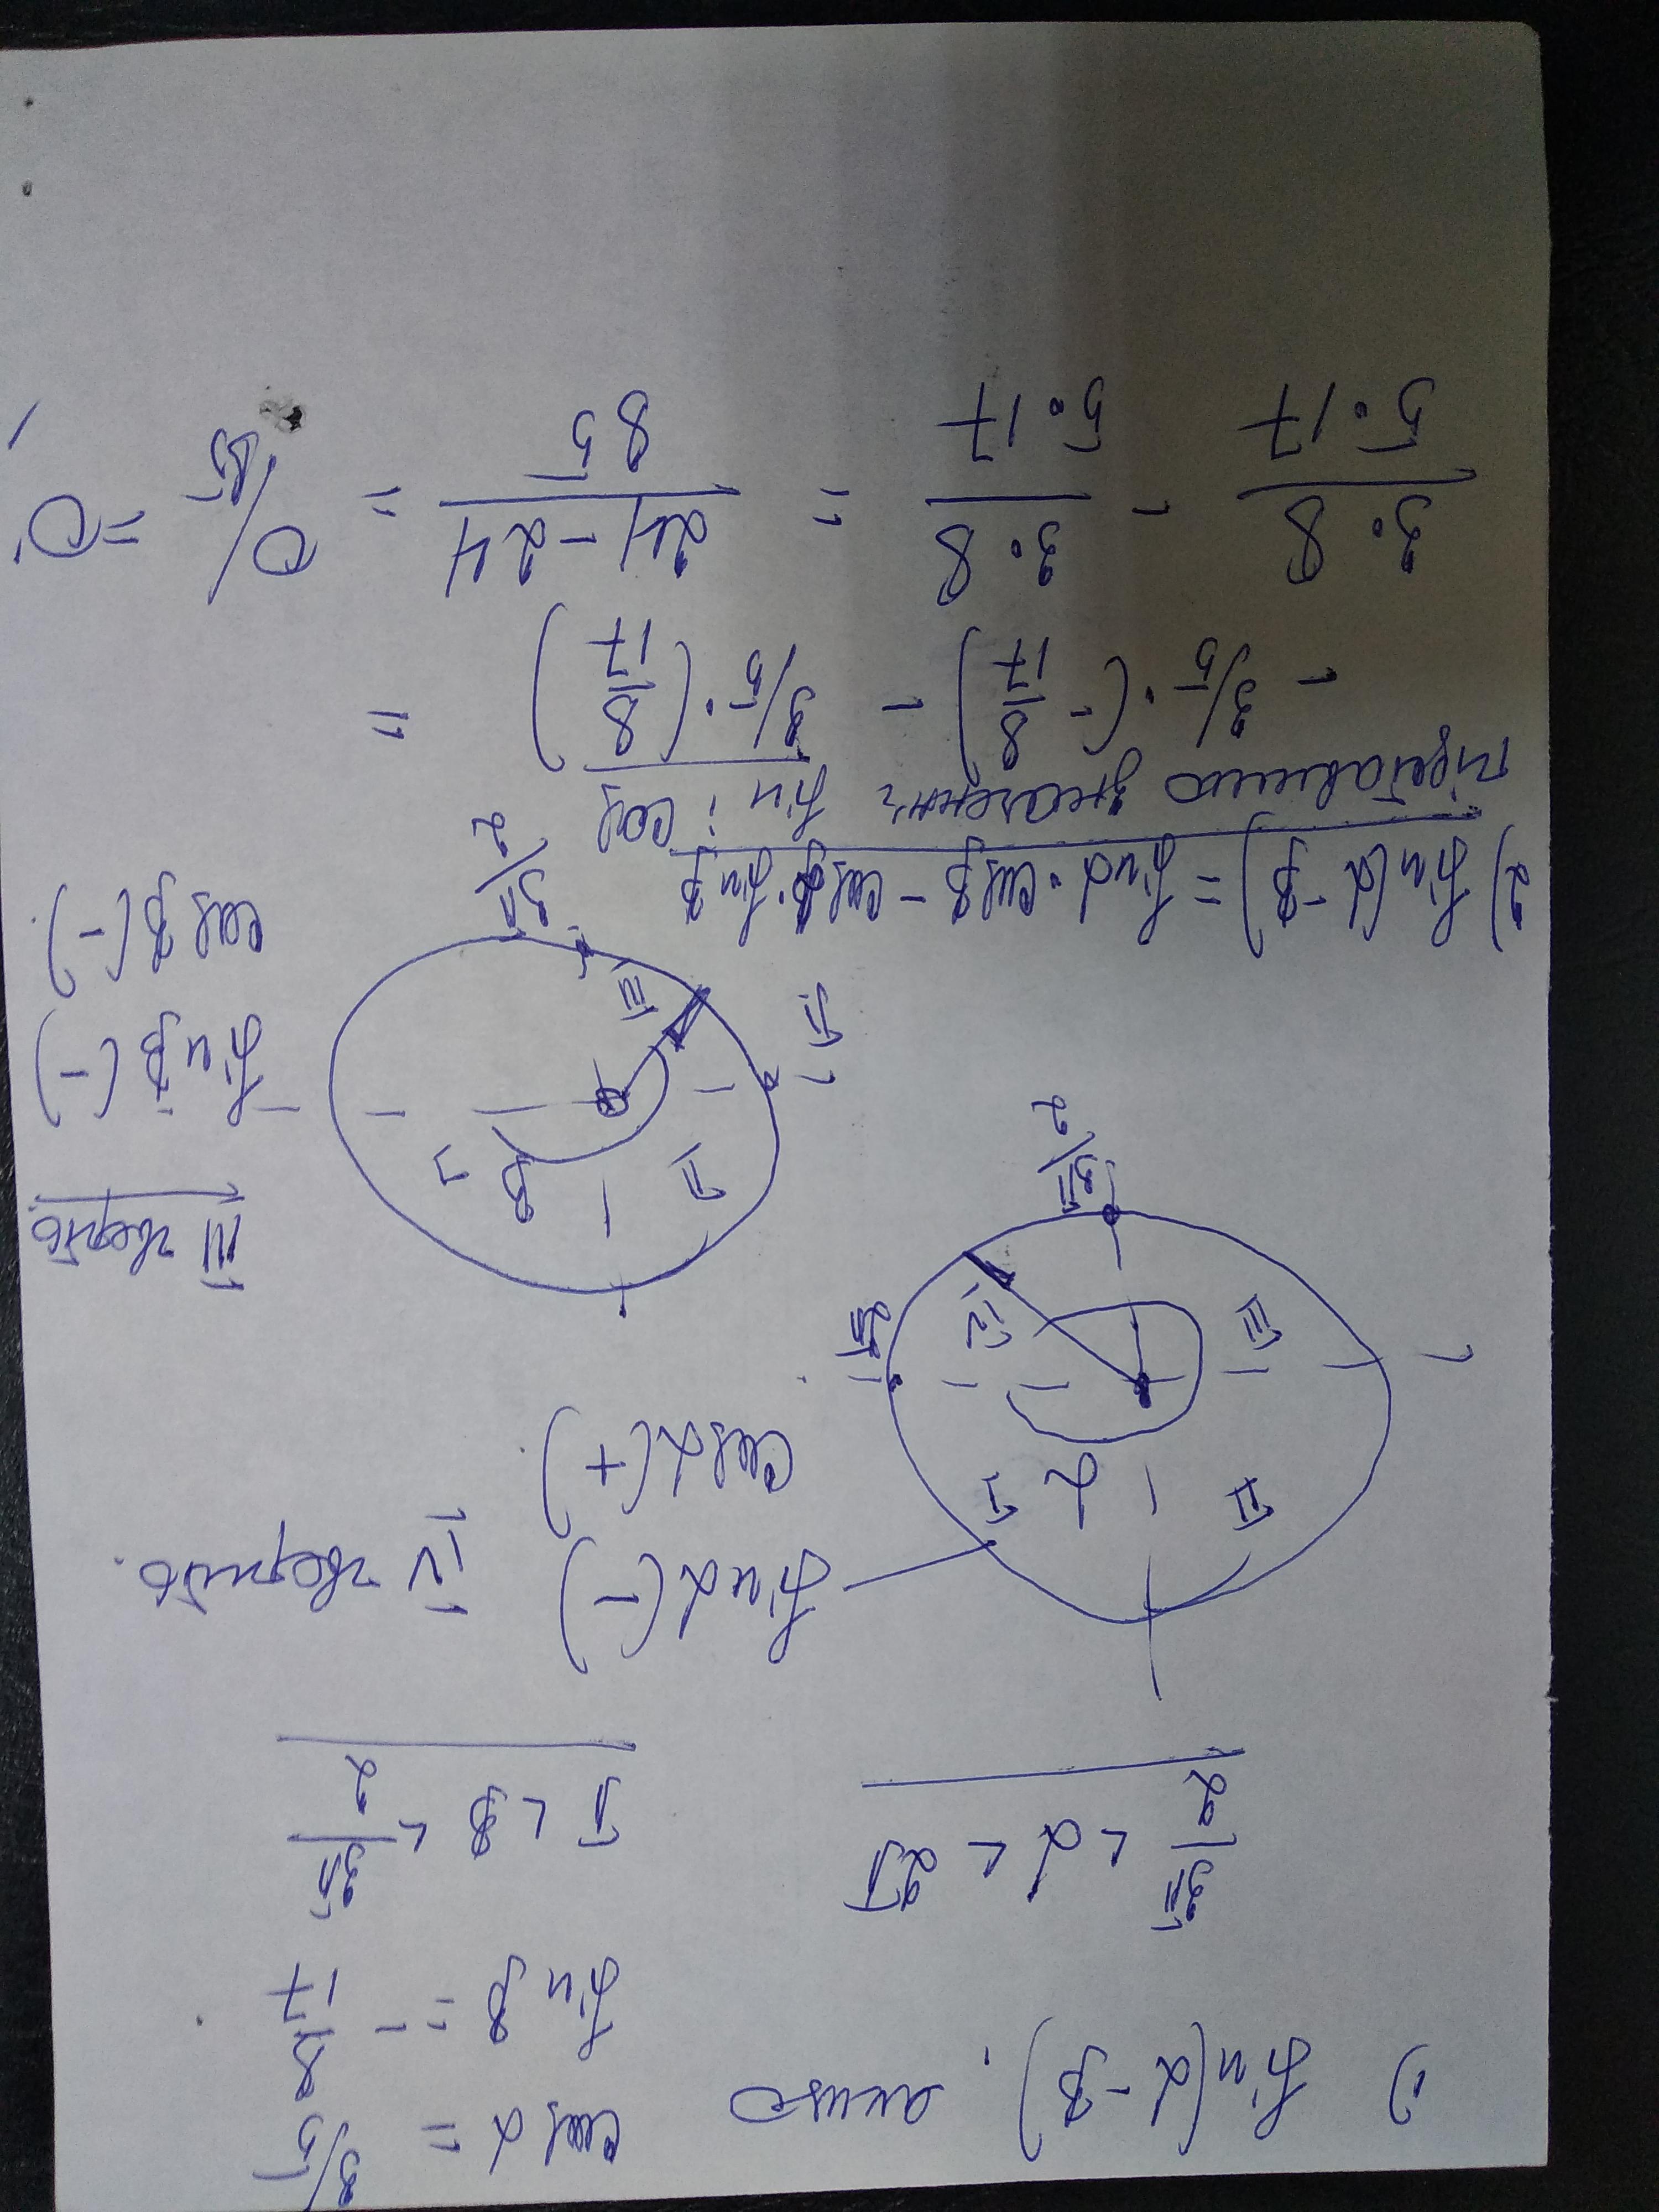 1) sin(α-β), якщо cos α = 3/5
sin β = - 8/17.
3π/2 < α < 2π
π < β < 3π/2
sin α (-) IV чверть.
cos α (+)
I α II
2π IV III
3π/2
III чверть.
sin β (-)
cos β (-).
I β II
π
III
3π/2
2) sin(α-β) = sin α · cos β - cos α · sin β
підставимо значення sin і cos
- 3/5 · (- 8/17) - 3/5 · (8/17) =
3·8/5·17 - 3·8/5·17 = 24-24/85 = 0/85 = 0.